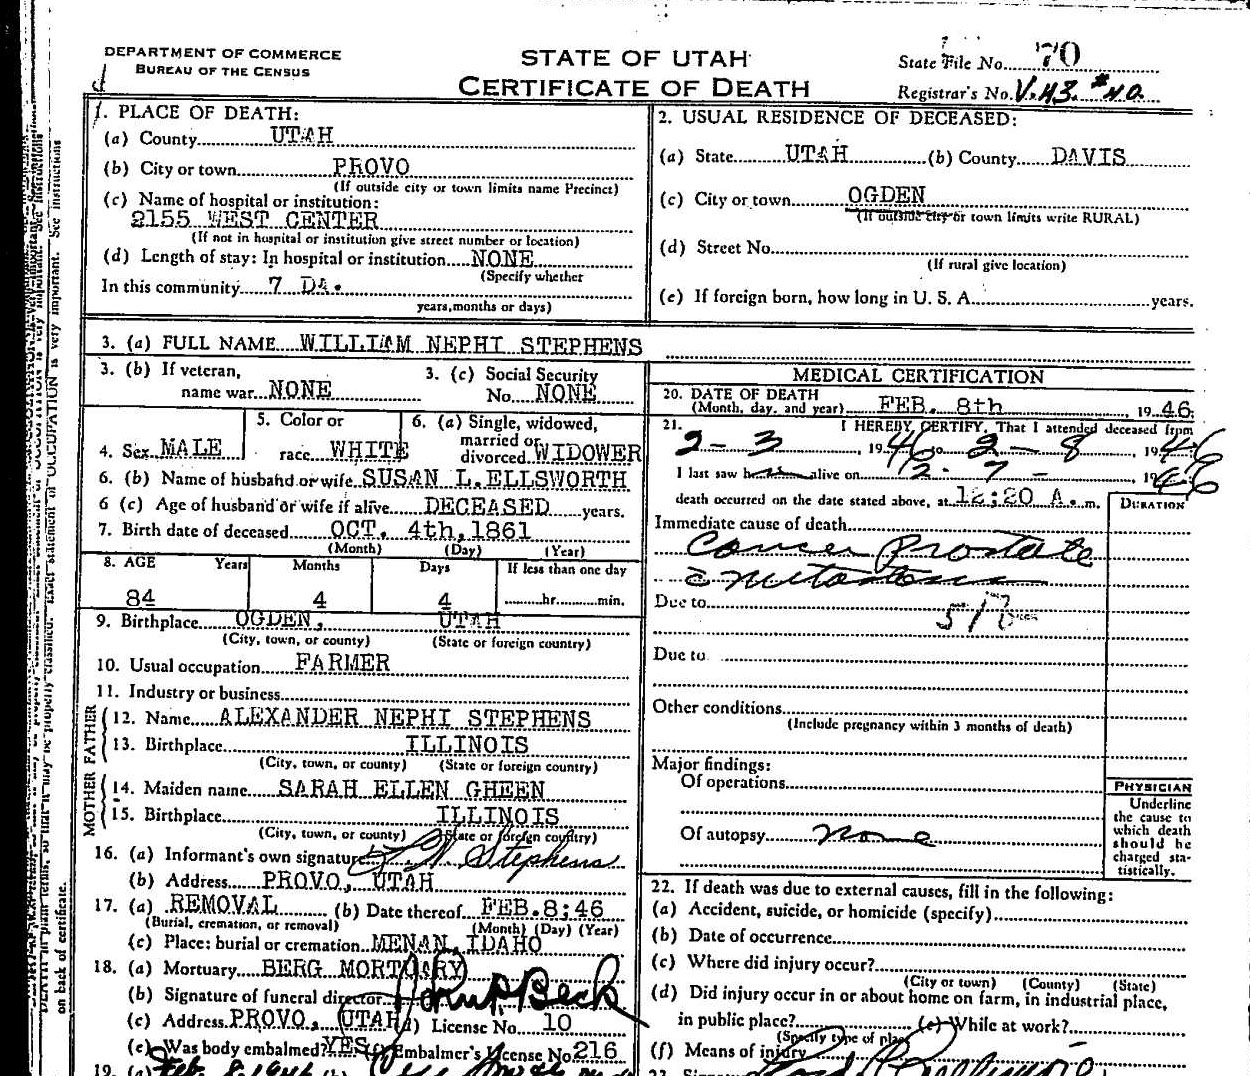 DEPARTMENT OF COMMERCE
BUREAU OF THE CENSUS
STATE OF UTAH
CERTIFICATE OF DEATH
State File No. 70
Registrar's No. V.43. #40.
1. PLACE OF DEATH:
(a) County UTAH
(b) City or town PROVO
(If outside city or town limits name Precinct)
(c) Name of hospital or institution:
2155 WEST CENTER
(If not in hospital or institution give street number or location)
(d) Length of stay: In hospital or institution NONE
(Specify whether
In this community 7 DA.
years, months or days)
2. USUAL RESIDENCE OF DECEASED:
(a) State UTAH (b) County DAVIS
(c) City or town OGDEN
(If outside city or town limits write RURAL)
(d) Street No.
(If rural give location)
(e) If foreign born, how long in U. S. A. years.
3. (a) FULL NAME WILLIAM NEPHI STEPHENS
3. (b) If veteran,
name war NONE
3. (c) Social Security
No. NONE
4. Sex MALE
5. Color or
race WHITE
6. (a) Single, widowed,
married or
divorced. WIDOWER
6. (b) Name of husband or wife SUSAN L. ELLSWORTH
6 (c) Age of husband or wife if alive DECEASED years.
7. Birth date of deceased OCT. 4th, 1861
(Month) (Day) (Year)
8. AGE Years Months Days If less than one day
84 4 4 hr. min.
9. Birthplace OGDEN, UTAH
(City, town, or county) (State or foreign country)
10. Usual occupation FARMER
11. Industry or business
FATHER
12. Name ALEXANDER NEPHI STEPHENS
13. Birthplace ILLINOIS
(City, town, or county) (State or foreign country)
MOTHER
14. Maiden name SARAH ELLEN GHEEN
15. Birthplace ILLINOIS
(City, town, or county) (State or foreign country)
16. (a) Informant's own signature Stephens
(b) Address PROVO, UTAH
17. (a) REMOVAL (b) Date thereof FEB.8;46
(Burial, cremation, or removal) (Month) (Day) (Year)
(c) Place: burial or cremation MENAN, IDAHO
18. (a) Mortuary BERG MORTUARY
(b) Signature of funeral director Beck
(c) Address PROVO, UTAH (d) License No. 10
(e) Was body embalmed? YES (f) Embalmer's License No. 216
19. (a) Feb. 8, 1946 (b)
MEDICAL CERTIFICATION
20. DATE OF DEATH
(Month, day, and year) FEB. 8th, 1946
21. I HEREBY CERTIFY, That I attended deceased from
2-3, 1946 to 2-8, 1946
I last saw h alive on 2-7-, 1946
death occurred on the date stated above, at 12:20 A. m.
DURATION
Immediate cause of death
Cancer Prostate
c metastasis
Due to
Due to
Other conditions
(Include pregnancy within 3 months of death)
Major findings:
Of operations
Of autopsy none
PHYSICIAN
Underline
the cause to
which death
should be
charged sta-
tistically.
22. If death was due to external causes, fill in the following:
(a) Accident, suicide, or homicide (specify)
(b) Date of occurrence
(c) Where did injury occur?
(City or town) (County) (State)
(d) Did injury occur in or about home on farm, in industrial place,
in public place? (e) While at work?
(Specify type of place)
(f) Means of injury
on back of certificate.